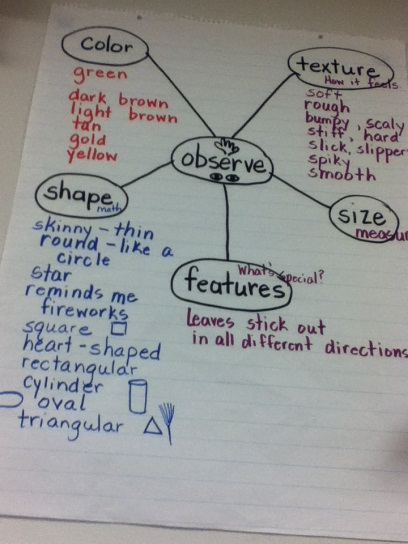 color
green
dark brown
light brown
tan
gold
yellow
texture
How it feels
soft
rough
bumpy, scaly
stiff, hard
slick, slipper
spiky
smooth
observe
shape
math
skinny - thin
round - like a
circle
star
reminds me
fireworks
square
heart - shaped
rectangular
cylinder
oval
triangular
size
measur
features
What's special?
Leaves stick out
in all different directions